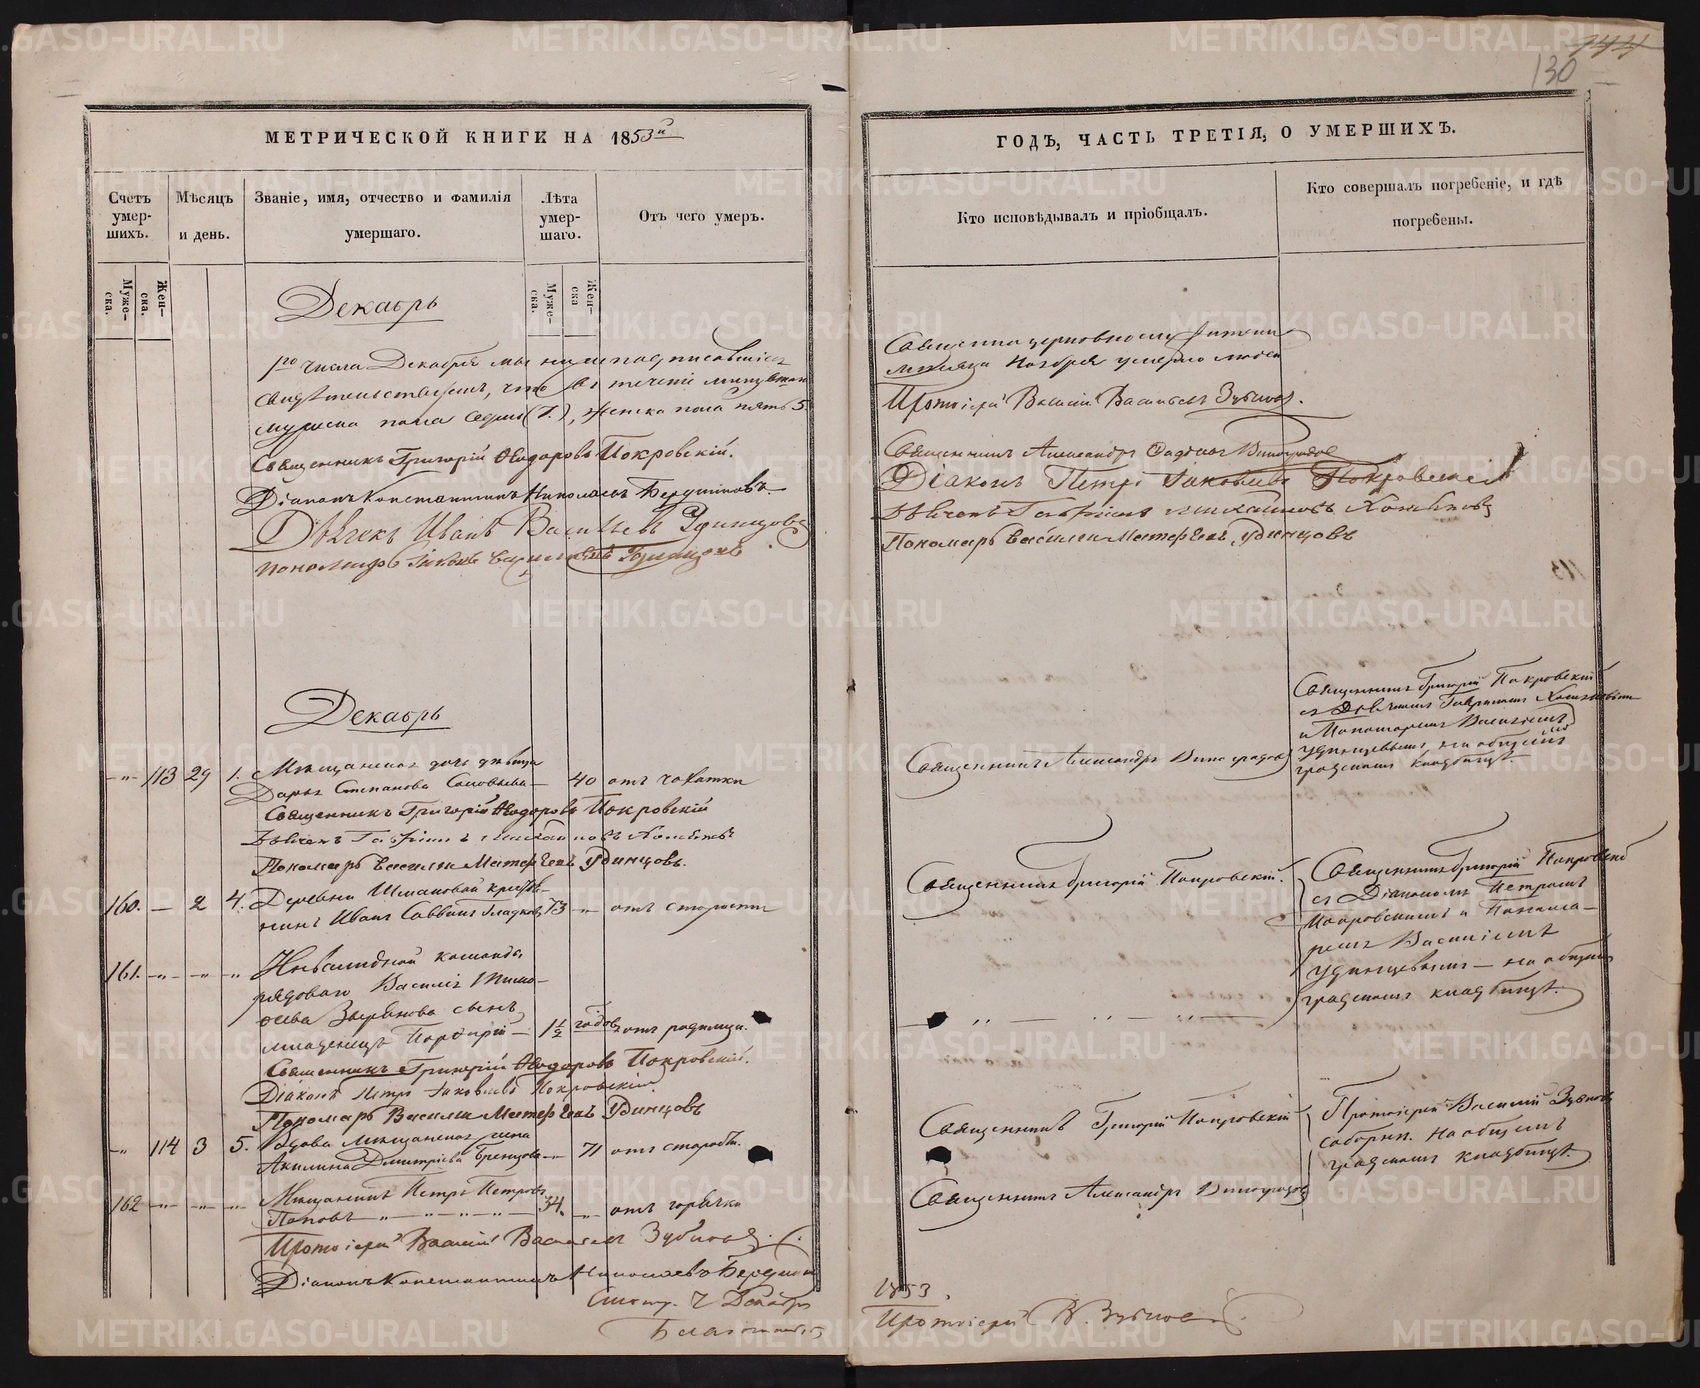 МЕТРИЧЕСКОЙ КНИГИ НА 1853й
Счетъ умер-шихъ.
Мѣсяцъ и день.
Званіе, имя, отчество и фамилія умершаго.
Лѣта умер-шаго.
Отъ чего умеръ.
Муже-ска.
Жен-ска.
Муже-ска.
Жен-ска
Декабрь
1го числа Декабря мы нижеподписавшіеся
свидѣтельствуемъ, что въ теченіе
мужеска пола седмь (7.), женска пола пять 5.
Священникъ Григорій Ѳеодоровъ Покровскій.
Діаконъ Константинъ Николаевъ
Дьячекъ Иванъ Васильевъ Удинцовъ
Пономарь
Декабрь
-"- 113 29 1. Мѣщанская дочь дѣвица
Дарья Степанова Соловьева - 40 отъ чахотки
Священникъ Григорій Ѳеодоровъ Покровскій
Дьячекъ Гавріилъ
Пономарь Василій Матфѣевъ Удинцовъ.
160. - 2 4. Деревни Шмаковой крестья-
нинъ Иванъ Саввинъ Гладковъ 73 -"- отъ старости
161. -"- -"- " Инвалидной команды
рядоваго Василія Тимо-
феева Зырянова сынъ
младенецъ Порфирій - 1 1/2 годов. отъ родимца.
Священникъ Григорій Ѳеодоровъ Покровскій.
Діаконъ Петръ Іаковлевъ Покровскій
Пономарь Василій Матфѣевъ Удинцовъ
-"- 114 3 5. Вдова мѣщанская жена
Акилина Дмитріева - 71 отъ старости.
162 -"- -"- -"- Мѣщанинъ Петръ Петровъ
Поповъ -"-"-"- 34. -"- отъ горячки
Протоіерей Василій Васильевъ Зубковъ.
Діаконъ Константинъ Николаевъ
Декабря
130
ГОДЪ, ЧАСТЬ ТРЕТІЯ, О УМЕРШИХЪ.
Кто исповѣдывалъ и пріобщалъ.
Кто совершалъ погребеніе, и гдѣ погребены.
Священноцерковнослужители
мѣсяца Ноября умерло
Протоіерей Василій Васильевъ Зубковъ.
Священникъ Александръ Виноградовъ
Діаконъ Петръ Іаковлевъ Покровскій
Дьячекъ Гавріилъ
Пономарь Василій Матфѣевъ Удинцовъ
Священникъ Григорій Покровскій
съ Дьячкомъ Гавріиломъ
и Пономаремъ Василіемъ
Удинцевымъ, на общемъ
градскомъ кладбищѣ.
Священникъ Александръ Виноградовъ
Священникъ Григорій Покровскій.
Священникъ Григорій Покровскій
съ Діакономъ Петромъ
Покровскимъ и Понома-
ремъ Василіемъ
Удинцевымъ - на общемъ
градскомъ кладбищѣ.
-"-"-"-"-
Священникъ Григорій Покровскій
Протоіерей Василій Зубковъ
соборнѣ. На общемъ
градскомъ кладбищѣ.
Священникъ Александръ Виноградовъ
1853.
Протоіерей В. Зубковъ.